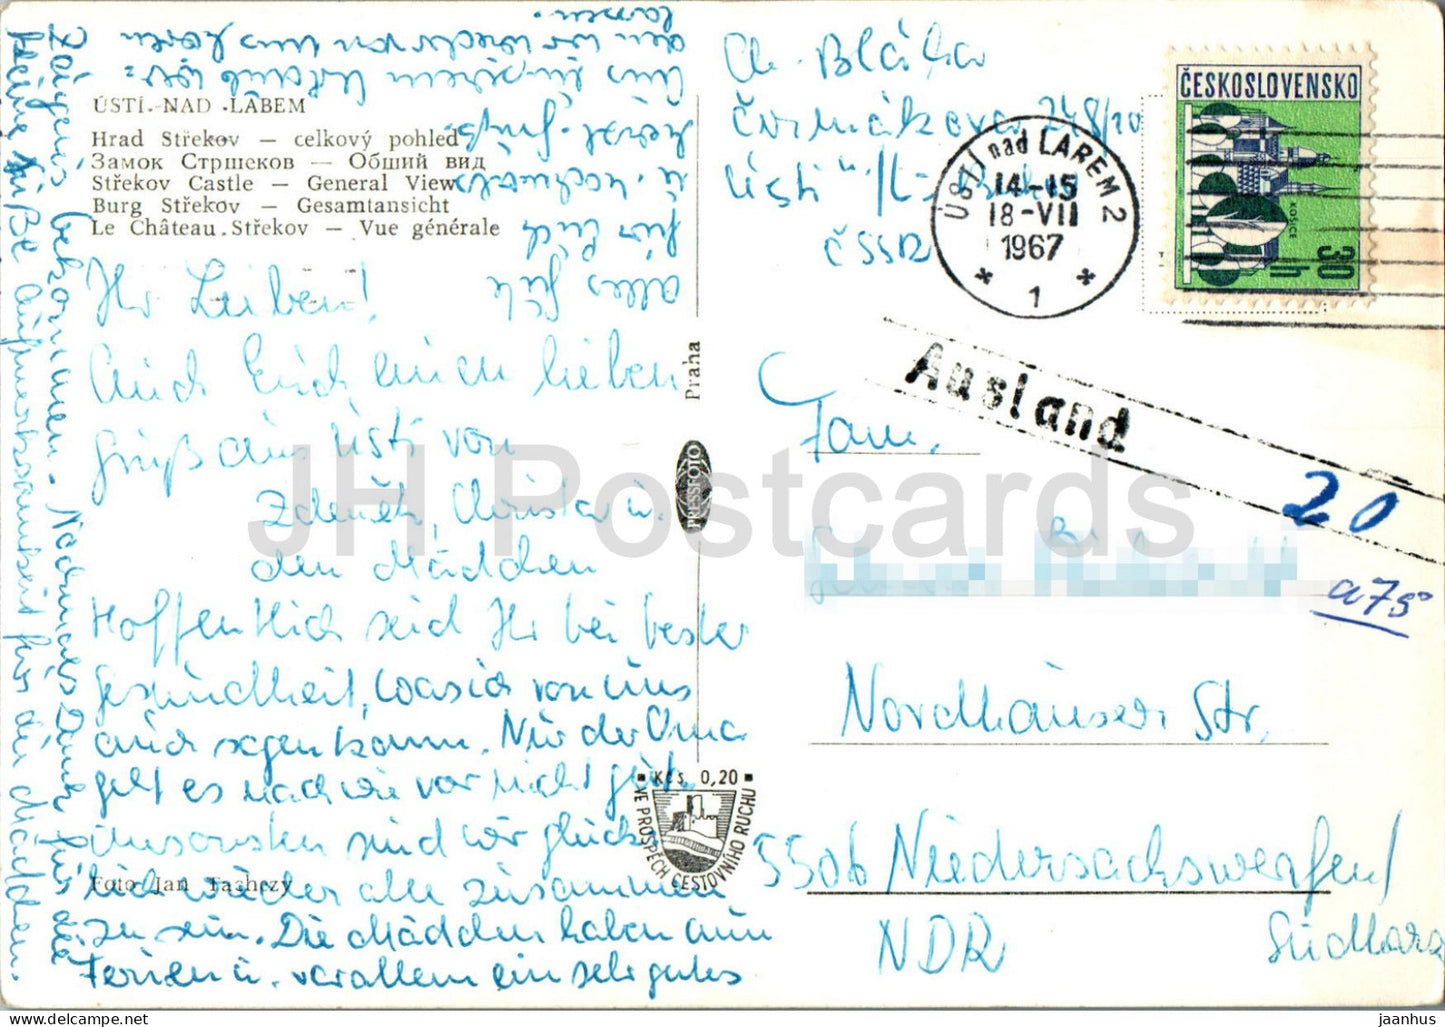 ÚSTÍ NAD LABEM
Hrad Střekov — celkový pohled
Замок Стршеков — Общий вид
Střekov Castle — General View
Burg Střekov — Gesamtansicht
Le Château Střekov — Vue générale
Ihr Lieben!
Auch Euch einen lieben
Gruß aus Ústí von
Zdeněk, Christa u.
den Mädchen
Hoffentlich seid Ihr bei bester
Gesundheit, was ich von uns
auch sagen kann. Nur der Oma
geht es nach wie vor nicht gut.
Ansonsten sind wir glück-
lich wieder alle zusammen
zu sein. Die Mädchen haben nun
Ferien u. vor allem ein sehr gutes
Zeugnis bekommen. Nochmals Dank für die
kleine süße Aufmerksamkeit für die Mädchen.
alles Gute
für Euch
u. nochmals
uns in
lassen.
Foto Jan Tachezy
Praha
PRESSFOTO
Kčs 0,20
VE PROSPĚCH CESTOVNÍHO RUCHU
Ch. Bláha
Čermákova 248/10
Ústí n/L
ČSSR
ÚSTÍ nad LABEM 2
14-15
18-VII
1967
1
ČESKOSLOVENSKO
KOŠICE
30 h
Ausland
20
a75
Fam.
Nordhäuser Str.
5506 Niedersachswerfen/
Südharz
NDR
JH Postcards
www.delcampe.net
jaanhus